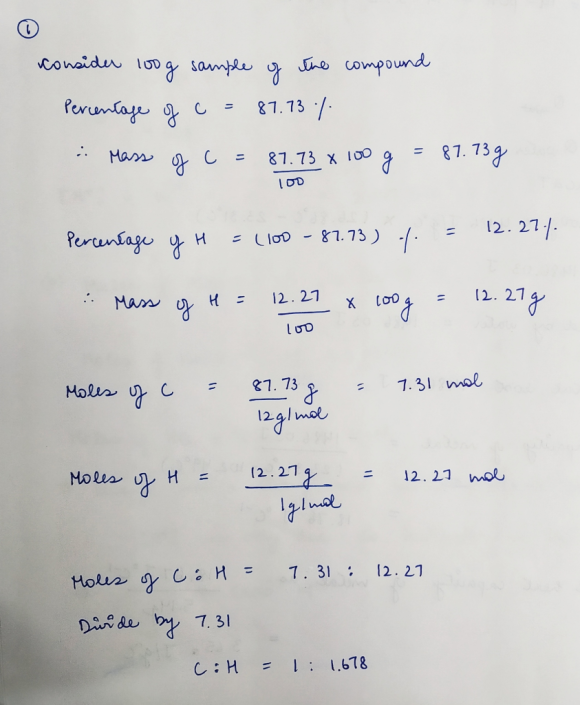 ①
Consider 100g sample of the compound
Percentage of C = 87.73 %
∴ Mass of C = 87.73/100 × 100 g = 87.73g
Percentage of H = (100 - 87.73) % = 12.27%
∴ Mass of H = 12.27/100 × 100g = 12.27g
Moles of C = 87.73 g/12g/mol = 7.31 mol
Moles of H = 12.27g/1g/mol = 12.27 mol
Moles of C : H = 7.31 : 12.27
Divide by 7.31
C : H = 1 : 1.678